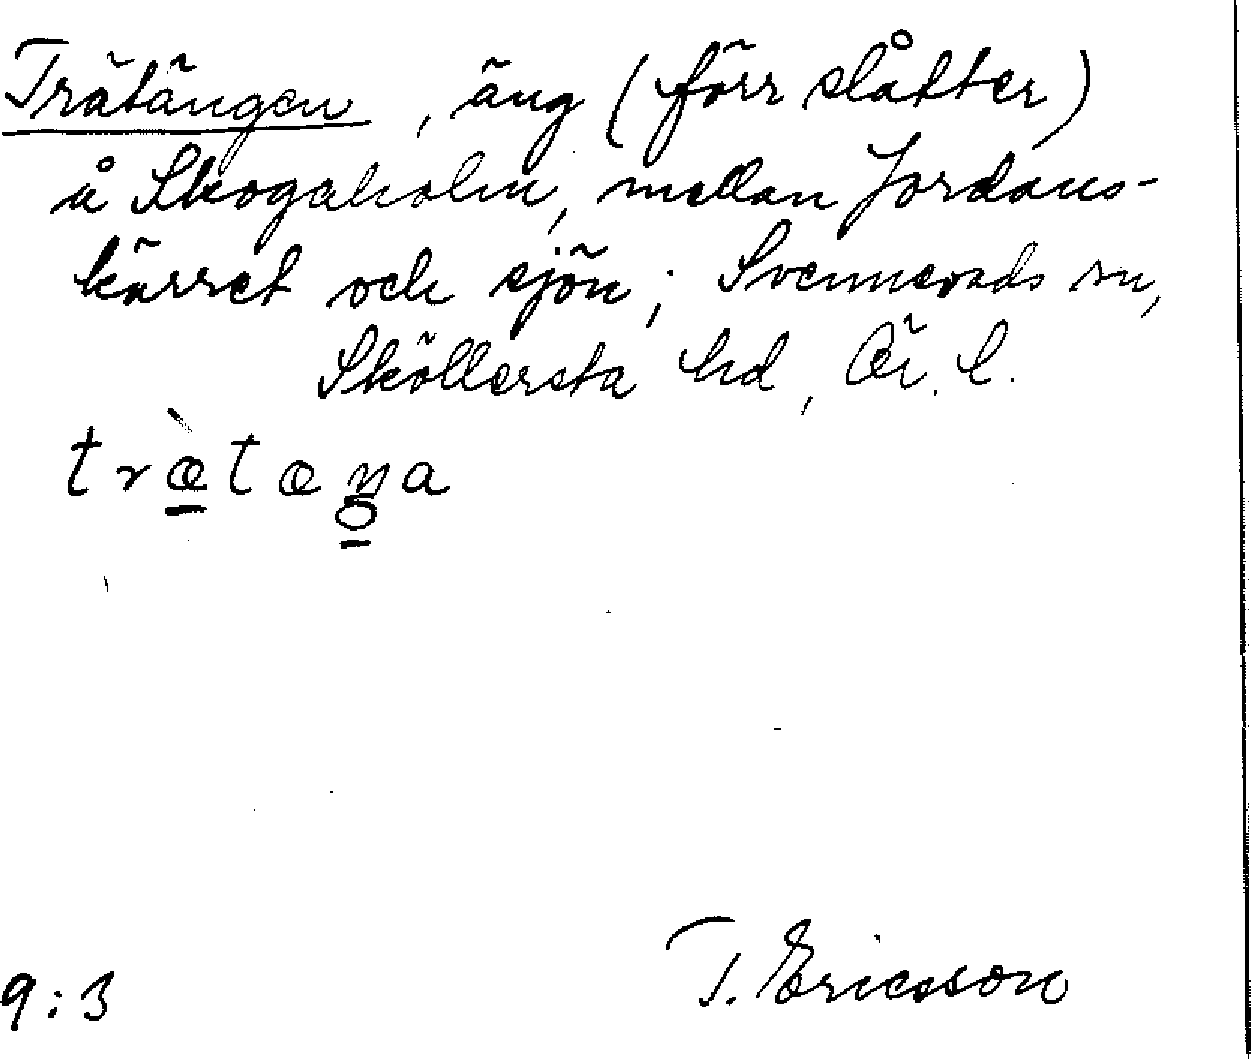 Trätängen, äng (förr slåtter)
å Skogaholm, mellan Jordans-
kärret och sjön; Svennevads sn,
Sköllersta hd, Ör. l.
træ̀tæŋa
T. Ericsson
9:3